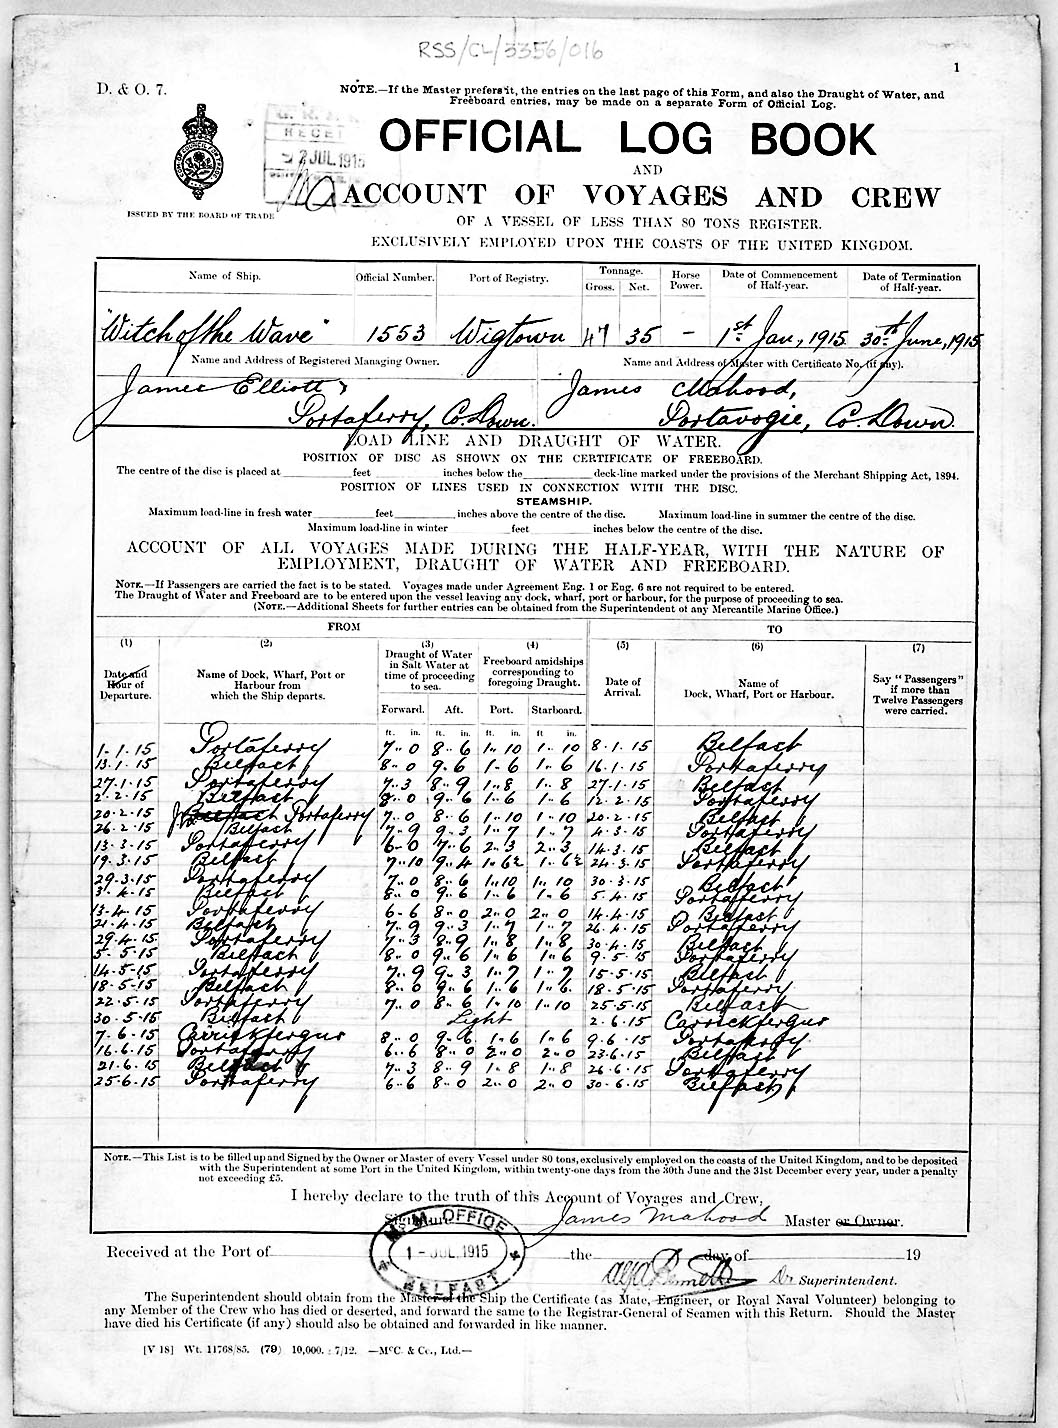 RSS/CL/3356/016
1
D. & O. 7.
NOTE.—If the Master prefers it, the entries on the last page of this Form, and also the Draught of Water, and
Freeboard entries, may be made on a separate Form of Official Log.
2 JUL 1915
OFFICIAL LOG BOOK
AND
ACCOUNT OF VOYAGES AND CREW
ISSUED BY THE BOARD OF TRADE
OF A VESSEL OF LESS THAN 80 TONS REGISTER.
EXCLUSIVELY EMPLOYED UPON THE COASTS OF THE UNITED KINGDOM.
Name of Ship. Official Number. Port of Registry. Tonnage. Gross. Net. Horse Power. Date of Commencement of Half-year. Date of Termination of Half-year.
"Witch of the Wave" 1553 Wigtown 47 35 - 1st Jan, 1915 30th June, 1915
Name and Address of Registered Managing Owner. Name and Address of Master with Certificate No. (if any).
James Elliott, James Mahood,
Portaferry, Co. Down. Portavogie, Co. Down.
LOAD LINE AND DRAUGHT OF WATER.
POSITION OF DISC AS SHOWN ON THE CERTIFICATE OF FREEBOARD.
The centre of the disc is placed at feet inches below the deck-line marked under the provisions of the Merchant Shipping Act, 1894.
POSITION OF LINES USED IN CONNECTION WITH THE DISC.
STEAMSHIP.
Maximum load-line in fresh water feet inches above the centre of the disc. Maximum load-line in summer the centre of the disc.
Maximum load-line in winter feet inches below the centre of the disc.
ACCOUNT OF ALL VOYAGES MADE DURING THE HALF-YEAR, WITH THE NATURE OF
EMPLOYMENT, DRAUGHT OF WATER AND FREEBOARD.
NOTE.—If Passengers are carried the fact is to be stated. Voyages made under Agreement Eng. 1 or Eng. 6 are not required to be entered.
The Draught of Water and Freeboard are to be entered upon the vessel leaving any dock, wharf, port or harbour, for the purpose of proceeding to sea.
(NOTE.—Additional Sheets for further entries can be obtained from the Superintendent of any Mercantile Marine Office.)
FROM TO
(1) (2) (3) (4) (5) (6) (7)
Date and Hour of Departure. Name of Dock, Wharf, Port or Harbour from which the Ship departs. Draught of Water in Salt Water at time of proceeding to sea. Freeboard amidships corresponding to foregoing Draught. Date of Arrival. Name of Dock, Wharf, Port or Harbour. Say "Passengers" if more than Twelve Passengers were carried.
Forward. Aft. Port. Starboard.
ft. in. ft. in. ft. in. ft in.
1.1.15 Portaferry 7.. 0 8.. 6 1.. 10 1.. 10 8.1.15 Belfast
13.1.15 Belfast 8.. 0 9.. 6 1.. 6 1.. 6 16.1.15 Portaferry
27.1.15 Portaferry 7.. 3 8.. 9 1.. 8 1.. 8 27.1.15 Belfast
2.2.15 Belfast 8.. 0 9.. 6 1.. 6 1.. 6 12.2.15 Portaferry
20.2.15 Belfast Portaferry 7.. 0 8.. 6 1.. 10 1.. 10 20.2.15 Belfast
26.2.15 Belfast 7.. 9 9.. 3 1.. 7 1.. 7 4.3.15 Portaferry
13.3.15 Portaferry 6.. 0 7.. 6 2.. 3 2.. 3 14.3.15 Belfast
19.3.15 Belfast 7.. 10 9.. 4 1.. 6½ 1.. 6½ 24.3.15 Portaferry
29.3.15 Portaferry 7.. 0 8.. 6 1.. 10 1.. 10 30.3.15 Belfast
3.4.15 Belfast 8.. 0 9.. 6 1.. 6 1.. 6 5.4.15 Portaferry
13.4.15 Portaferry 6.. 6 8.. 0 2.. 0 2.. 0 14.4.15 Belfast
21.4.15 Belfast 7.. 9 9.. 3 1.. 7 1.. 7 26.4.15 Portaferry
29.4.15 Portaferry 7.. 3 8.. 9 1.. 8 1.. 8 30.4.15 Belfast
5.5.15 Belfast 8.. 0 9.. 6 1.. 6 1.. 6 9.5.15 Portaferry
14.5.15 Portaferry 7.. 9 9.. 3 1.. 7 1.. 7 15.5.15 Belfast
18.5.15 Belfast 8.. 0 9.. 6 1.. 6 1.. 6 18.5.15 Portaferry
22.5.15 Portaferry 7.. 0 8.. 6 1.. 10 1.. 10 25.5.15 Belfast
30.5.15 Belfast Light 2.6.15 Carrickfergus
7.6.15 Carrickfergus 8.. 0 9.. 6 1.. 6 1.. 6 9.6.15 Portaferry
16.6.15 Portaferry 6.. 6 8.. 0 2.. 0 2.. 0 23.6.15 Belfast
21.6.15 Belfast 7.. 3 8.. 9 1.. 8 1.. 8 26.6.15 Portaferry
25.6.15 Portaferry 6.. 6 8.. 0 2.. 0 2.. 0 30.6.15 Belfast
NOTE.—This List is to be filled up and Signed by the Owner or Master of every Vessel under 80 tons, exclusively employed on the coasts of the United Kingdom, and to be deposited
with the Superintendent at some Port in the United Kingdom, within twenty-one days from the 30th June and the 31st December every year, under a penalty
not exceeding £5.
I hereby declare to the truth of this Account of Voyages and Crew,
James Mahood Master or Owner.
M. M. OFFICE
1 - JUL 1915
BELFAST
Received at the Port of the day of 19
Dr Superintendent.
The Superintendent should obtain from the Master of the Ship the Certificate (as Mate, Engineer, or Royal Naval Volunteer) belonging to
any Member of the Crew who has died or deserted, and forward the same to the Registrar-General of Seamen with this Return. Should the Master
have died his Certificate (if any) should also be obtained and forwarded in like manner.
[V 18] Wt. 11768/85. (79) 10,000. : 7/12. —McC. & Co., Ltd.—